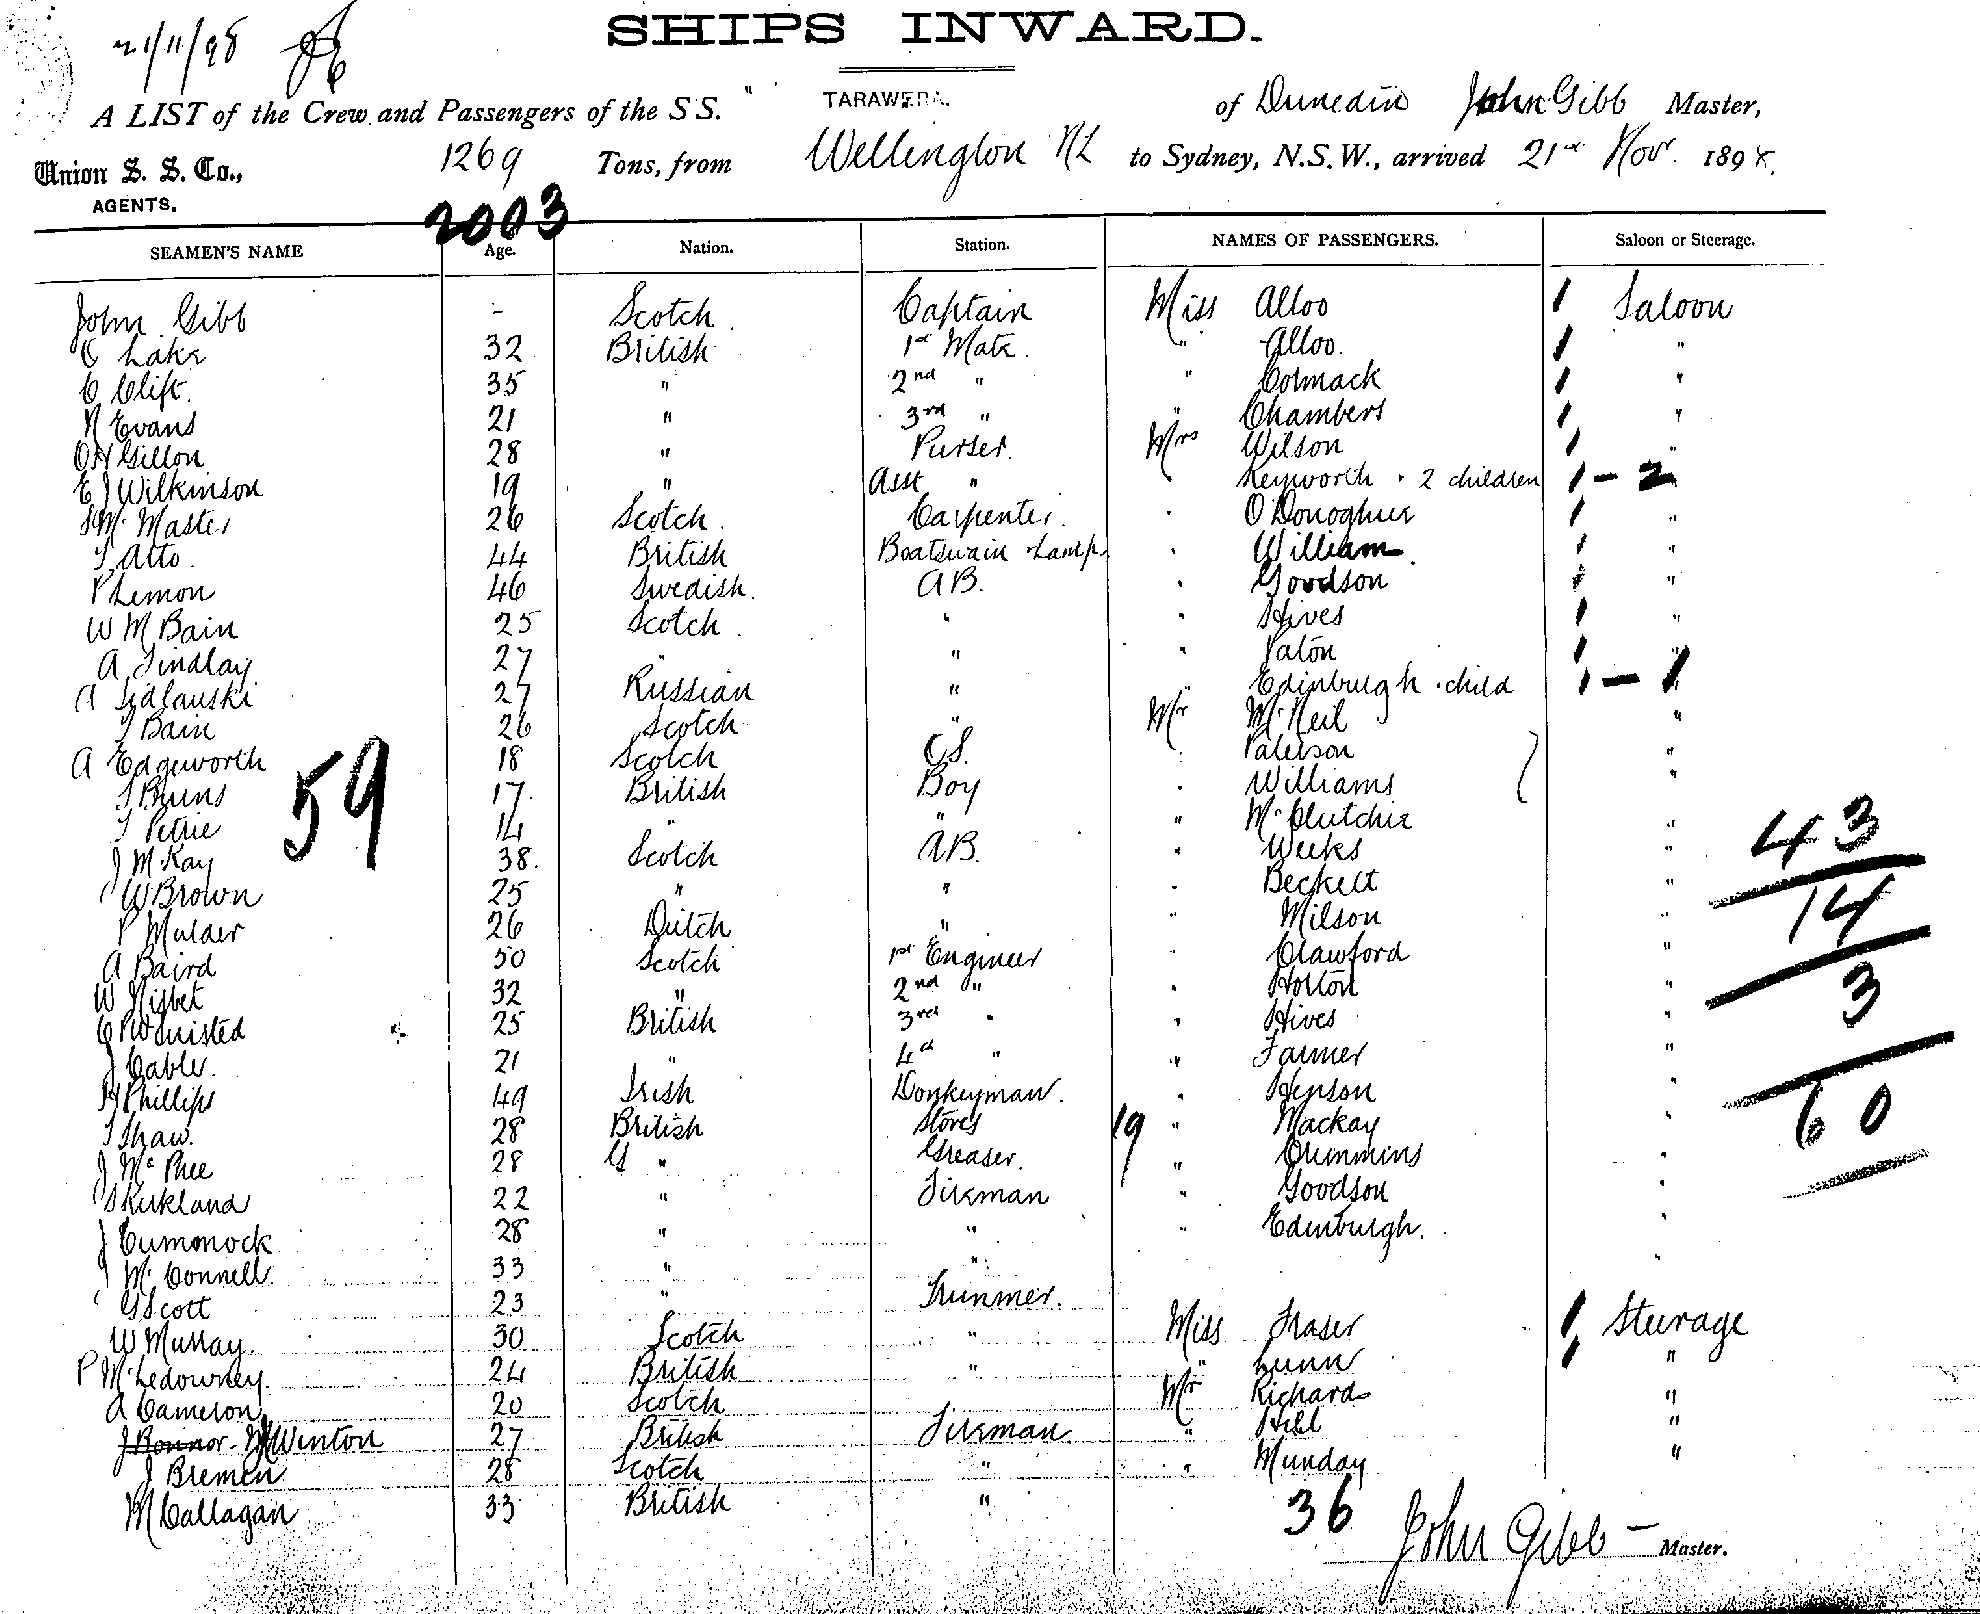 21/11/98
SHIPS INWARD.
A LIST of the Crew and Passengers of the S.S. " TARAWERA. of Dunedin John Gibb Master,
Union S. S. Co., 1269 Tons, from Wellington NZ to Sydney, N.S.W., arrived 21st Nov. 1898.
AGENTS.
2003
SEAMEN'S NAME Age. Nation. Station. NAMES OF PASSENGERS. Saloon or Steerage.
John Gibb - Scotch Captain Miss Alloo 1 Saloon
C Lake 32 British 1st Mate. " Alloo. 1 "
C Clift. 35 " 2nd " " Cormack 1 "
R Evans 21 " 3rd " " Chambers 1 "
O H Gillon 28 " Purser. Mrs Wilson 1 "
E J Wilkinson 19 " Asst " " Keyworth + 2 children 1 - 2 "
Mc Master 26 Scotch. Carpenter. " O'Donoghue 1 "
T Atto. 44 British Boatswain & Lamp. " William 1 "
P Lemon 46 Swedish. A B. " Goodson 1 "
W McBain 25 Scotch. " " Hives 1 "
A Findlay 27 " " " Paton 1 "
A 27 Russian " " Edinburgh & child 1 - 1 "
T Bain 26 Scotch " Mr McNeil "
A Edgeworth 18 Scotch O.S. " Paterson "
T Bruns 17 British Boy " Williams "
T Petrie 14 " " " McClutchie "
J McKay 38. Scotch A B. " Weeks "
W Brown 25 " " " Beckett "
P Mulder 26 Dutch " " Milson "
A Baird 50 Scotch 1st Engineer " Crawford "
W Nisbet 32 " 2nd " " Horton "
C P W Quisted 25 British 3rd " " Hives "
J Cable. 21 " 4th " " Farmer "
H Phillips 49 Irish Donkeyman. " Henson "
T Shaw. 28 British Stores 19 " Mackay "
J McPhee 28 " Greaser. " Cummins "
Kirkland 22 " Fireman " Goodson "
J Cumonock 28 " " " Edinburgh. "
J McConnell 33 " " "
G Scott 23 " Trimmer.
W Murray. 30 Scotch " Miss Fraser 1 Steerage
P McLedowney. 24 British " " Lunn 1 "
A Cameron 20 Scotch Mr Richard "
J Connor - Winton 27 British Fireman " Hill "
J Bremen 28 Scotch " " Munday "
M Callagan 33 British "
59
43
14
3
60
36
John Gibb - Master.